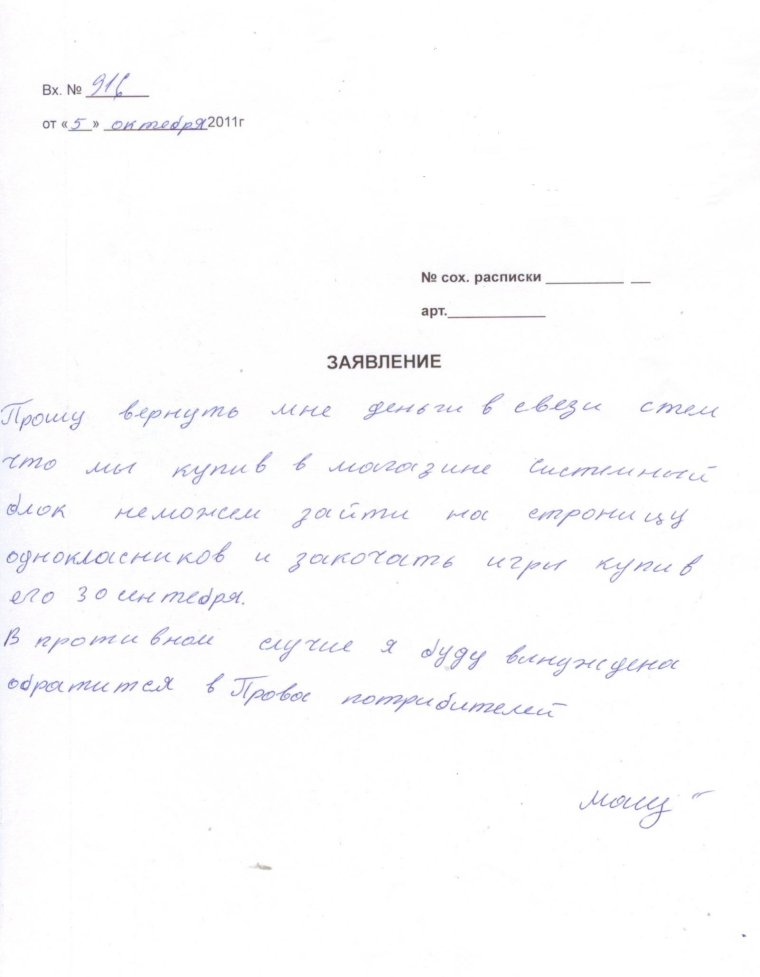 Вх. № 916
от «5» октября 2011г
№ сох. расписки _________ __
арт.____________
ЗАЯВЛЕНИЕ
Прошу вернуть мне деньги в свези стем
что мы купив в магазине систем‌ный
блок неможем зайти на строницу
однокласников и закочать игры купив
его 30 сентебря.
В противном случие я буду винуждена
обратится в Права потрибителей